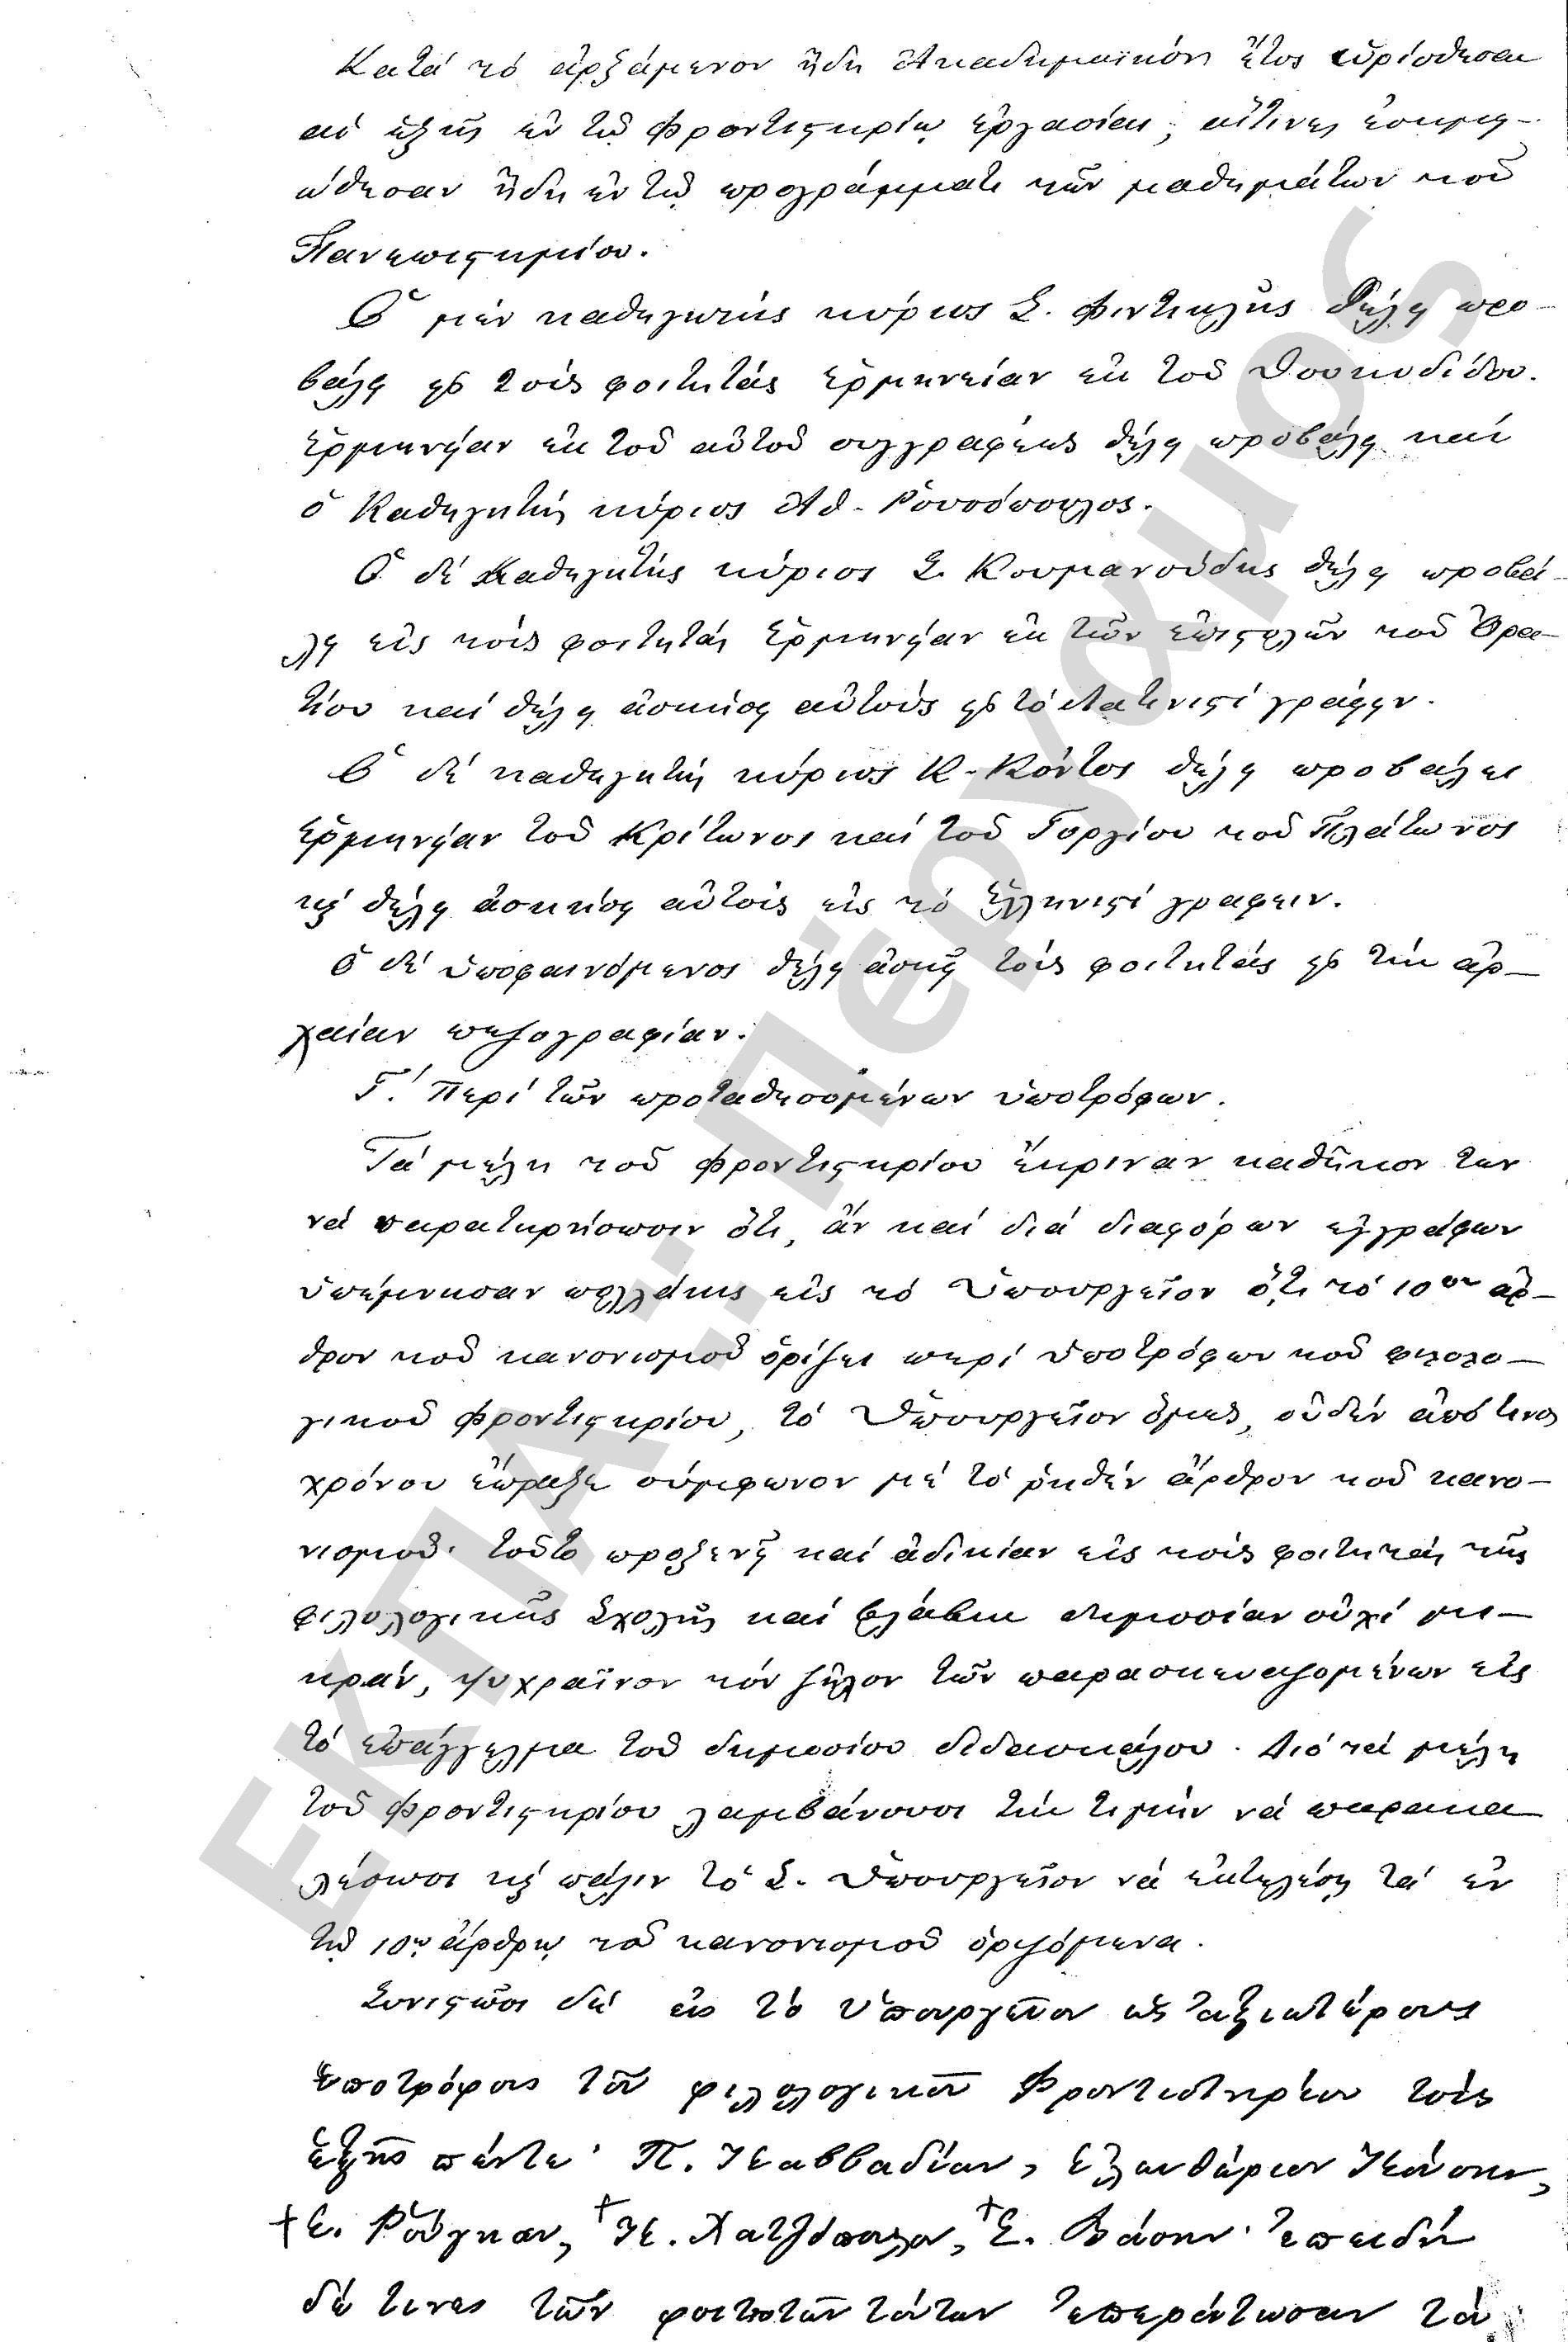 Κατά τό ἀρξάμενον ἤδη Ἀκαδημαϊκόν ἔτος ὡρίσθησαν
αἱ ἑξῆς ἐν τῷ Φροντιστηρίῳ ἐργασίαι, αἵτινες ἐσημει-
ώθησαν ἤδη ἐν τῷ προγράμματι τῶν μαθημάτων τοῦ
Πανεπιστημίου.
Ὁ μέν καθηγητής κύριος Σ. Φιντικλῆς θέλει προ-
βάλει εἰς τούς φοιτητάς ἑρμηνείαν ἐκ τοῦ Θουκυδίδου.
Ἑρμηνείαν ἐκ τοῦ αὐτοῦ συγγραφέως θέλει προβάλει καί
ὁ Καθηγητής κύριος Ἀθ. Ῥουσόπουλος.
Ὁ δέ Καθηγητής κύριος Σ. Κουμανούδης θέλει προβά-
λει εἰς τούς φοιτητάς ἑρμηνείαν ἐκ τῶν ἐπιστολῶν τοῦ Ὁρα-
τίου καί θέλει ἀσκήσει αὐτούς εἰς τό Λατινιστί γράφειν.
Ὁ δέ καθηγητής κύριος Κ. Κόντος θέλει προβάλει
ἑρμηνείαν τοῦ Κρίτωνος καί τοῦ Γοργίου τοῦ Πλάτωνος
καί θέλει ἀσκήσει αὐτούς εἰς τό ἑλληνιστί γράφειν.
Ὁ δέ ὑποφαινόμενος θέλει ἀσκεῖ τούς φοιτητάς εἰς τήν ἀρ-
χαίαν πεζογραφίαν.
Γ΄. Περί τῶν προταθησομένων ὑποτρόφων.
Τά μέλη τοῦ Φροντιστηρίου ἔκριναν καθῆκον των
νά παρατηρήσωσιν ὅτι, ἄν καί διά διαφόρων ἐγγράφων
ὑπέμνησαν πολλάκις εἰς τό Ὑπουργεῖον ὅ,τι τό 10ον ἄρ-
θρον τοῦ κανονισμοῦ ὁρίζει περί ὑποτρόφων τοῦ φιλολο-
γικοῦ Φροντιστηρίου, τό Ὑπουργεῖον ὅμως, οὐδέν ἀπό τινος
χρόνου ἔπραξε σύμφωνον μέ τό ῥηθέν ἄρθρον τοῦ κανο-
νισμοῦ· τοῦτο προξενεῖ καί ἀδικίαν εἰς τούς φοιτητάς τῆς
φιλολογικῆς Σχολῆς καί βλάβην δημοσίαν οὐχί μι-
κράν, ψυχραῖνον τόν ζῆλον τῶν παρασκευαζομένων εἰς
τό ἐπάγγελμα τοῦ δημοσίου διδασκάλου. Διό τά μέλη
τοῦ Φροντιστηρίου λαμβάνουσι τήν τιμήν νά παρακα-
λέσωσι καί πάλιν τό Σ. Ὑπουργεῖον νά ἐκτελέσῃ τά ἐν
τῷ 10ῳ ἄρθρῳ τοῦ κανονισμοῦ ὁριζόμενα.
Συνιστῶσι δέ εἰς τό Ὑπουργεῖον ὡς ἀξιωτέρους
ὑποτρόφους τοῦ φιλολογικοῦ Φροντιστηρίου τούς
ἑξῆς πέντε· Π. Καββαδίαν, Ἐλευθέριον
+ Ε. Ῥούγκαν, + Κ. Χατζόπουλον, + Σ. Βάσην· ἐπειδή
δέ τινες τῶν φοιτητῶν τούτων ἐπεράτωσαν τά
ΕΚΠΑ.. Πέργαμος